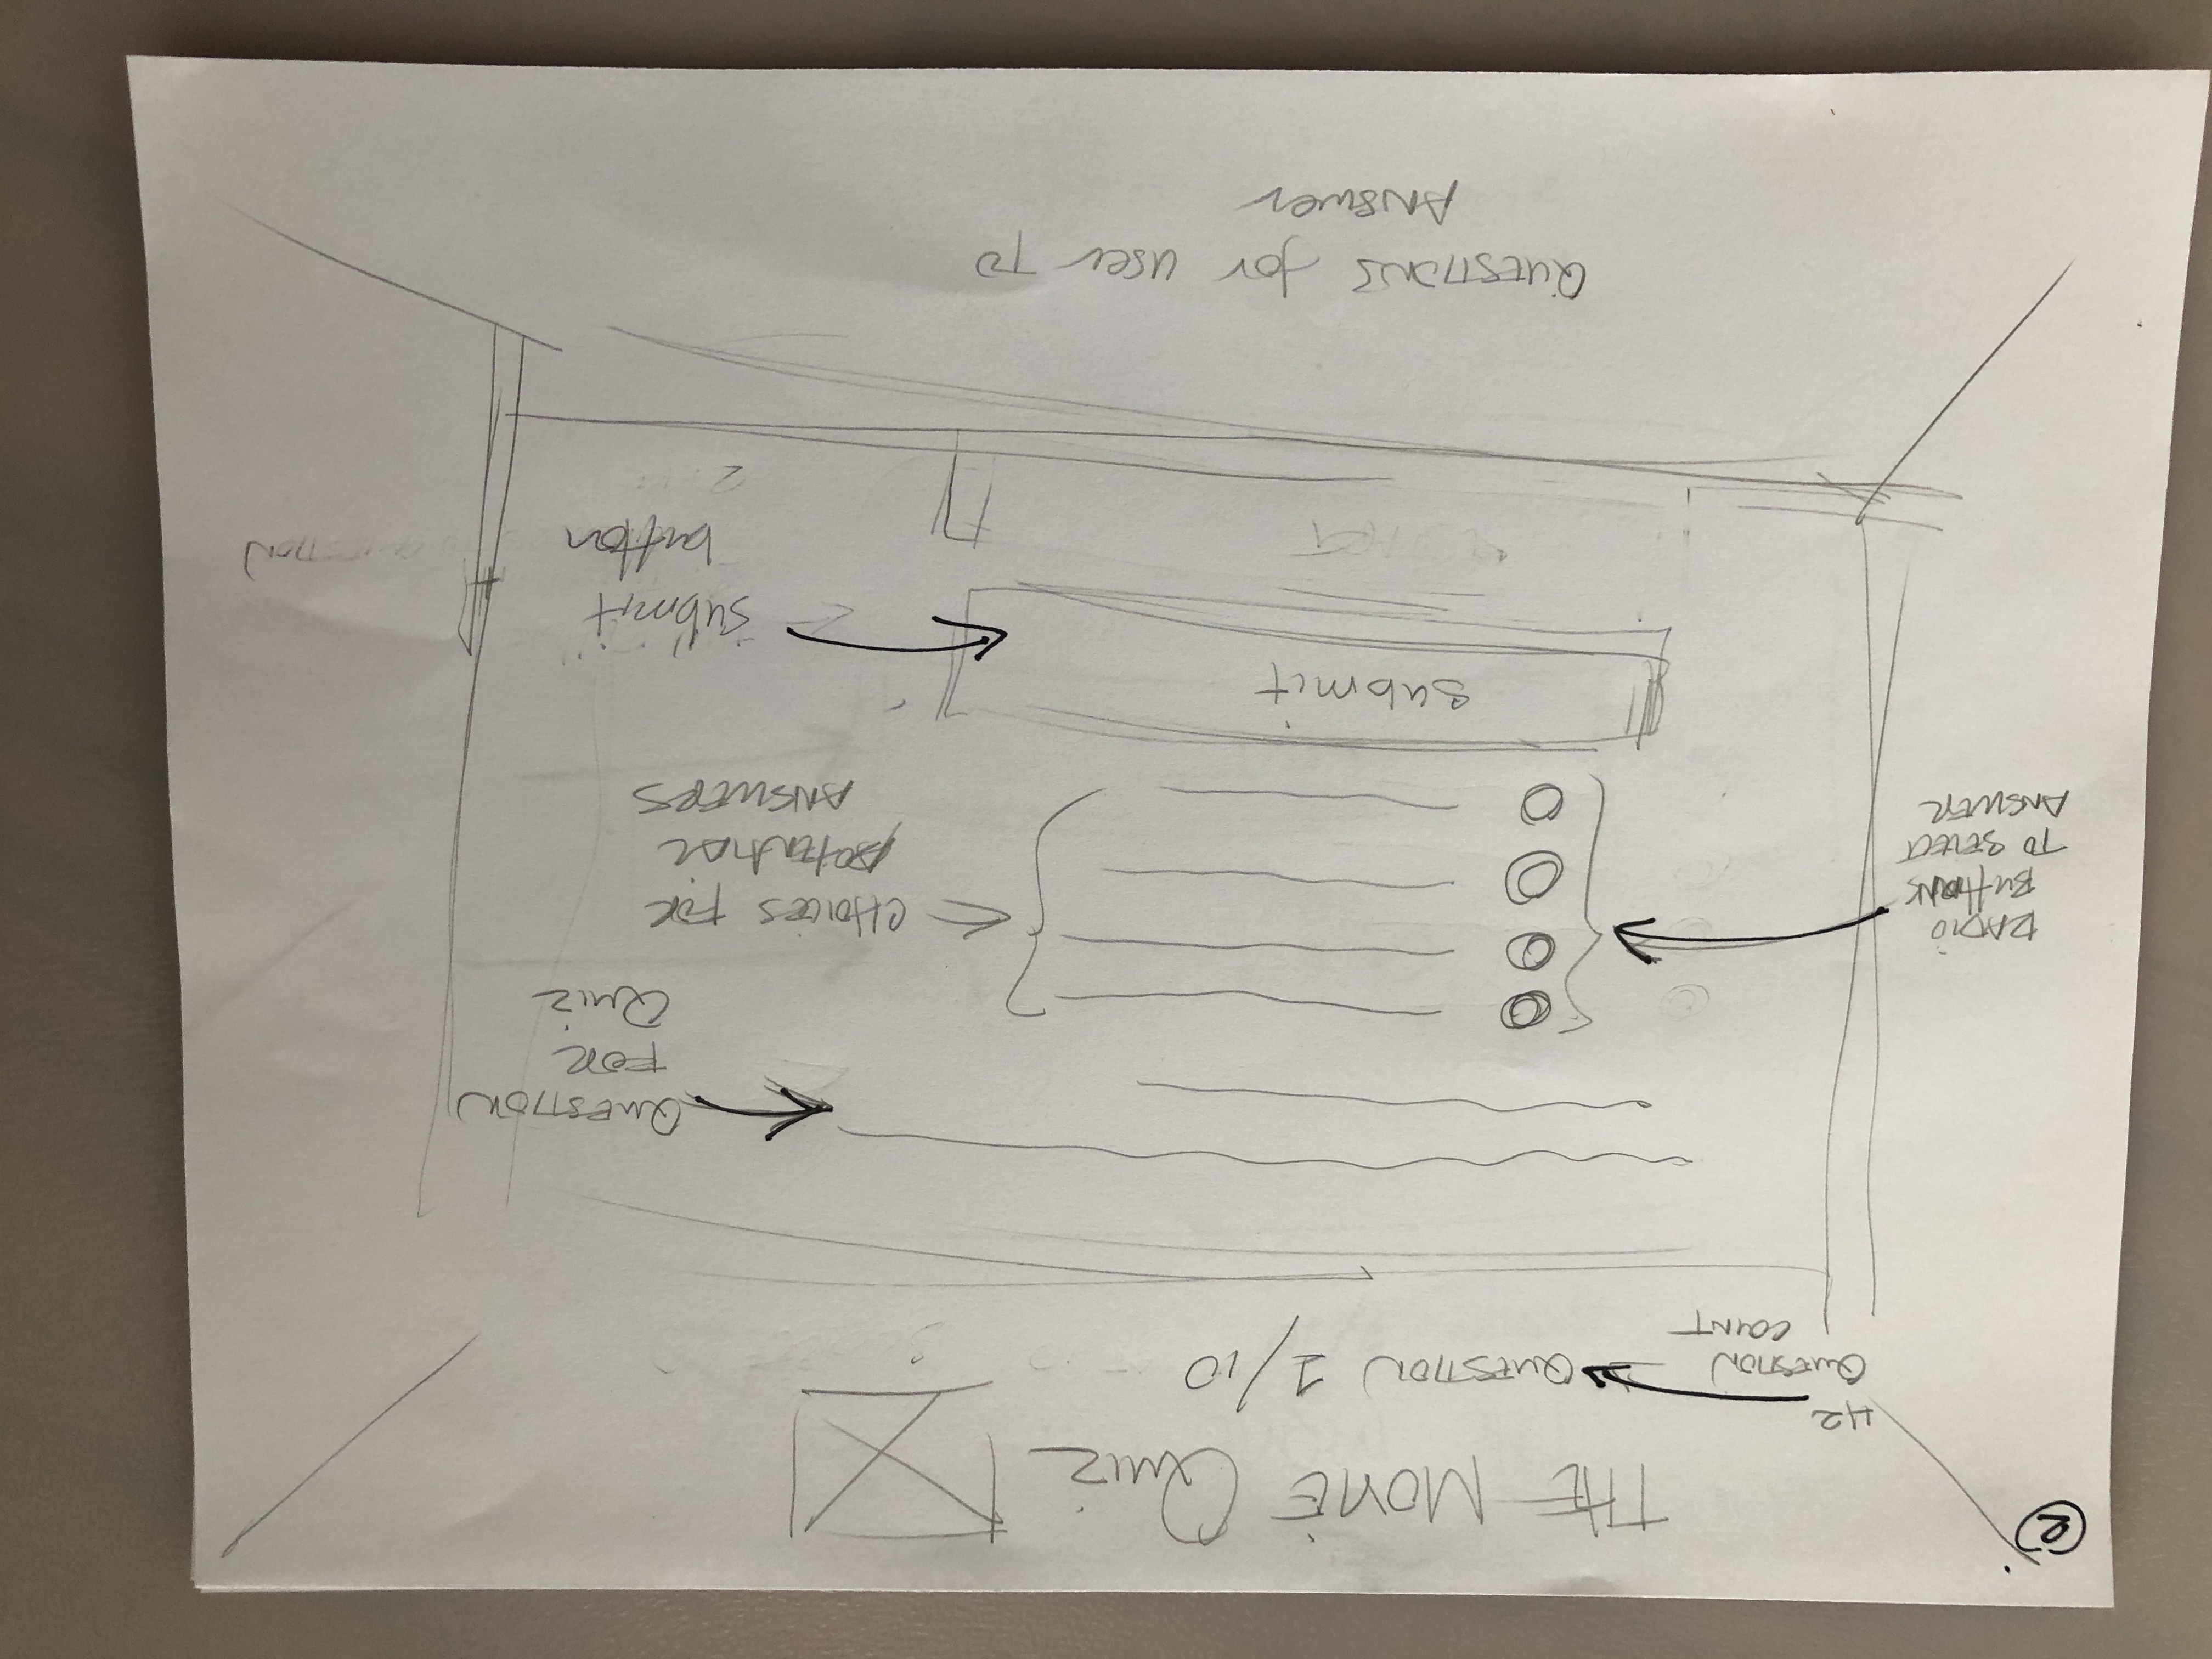 2
THE MOVIE QUIZ
H2
QUESTION
COUNT
QUESTION 1/10
QUESTION
FOR
QUIZ
CHOICES FOR
POTENTIAL
ANSWERS
RADIO
BUTTONS
TO SELECT
ANSWER
submit
"submit"
button
QUESTIONS for user TO
ANSWER